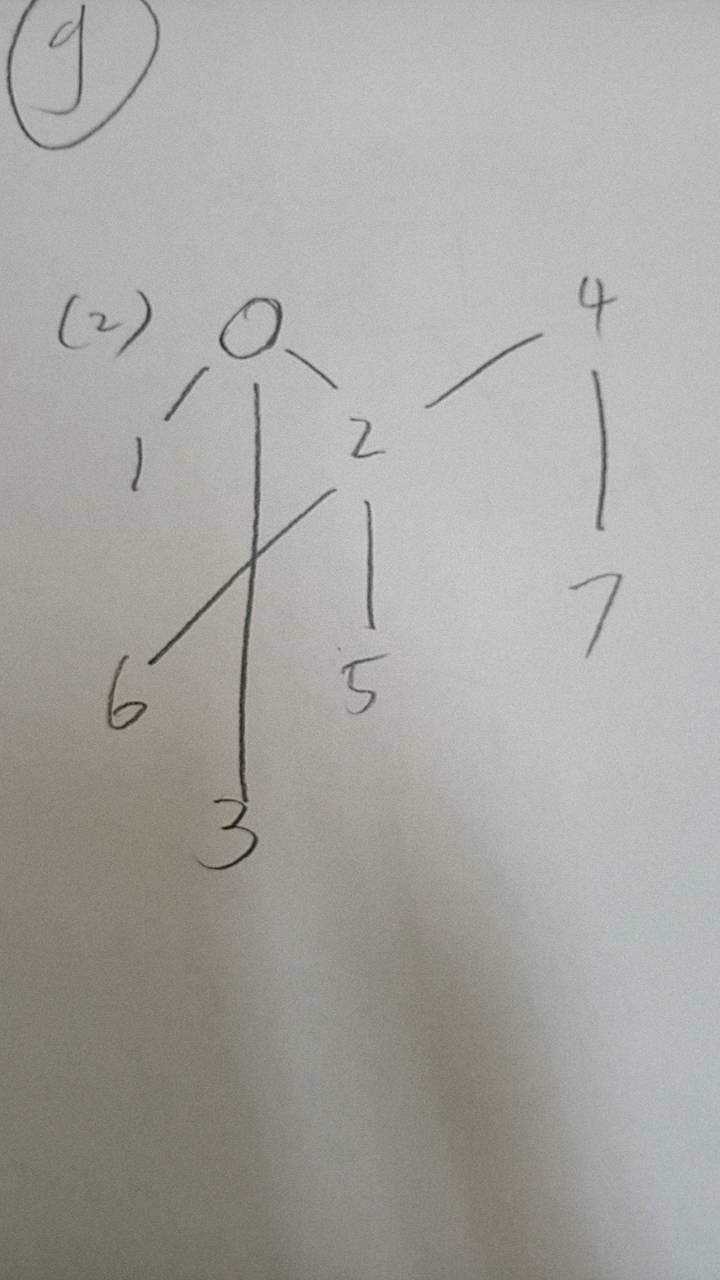 9
(2) 0 4
1 2
7
6 5
3